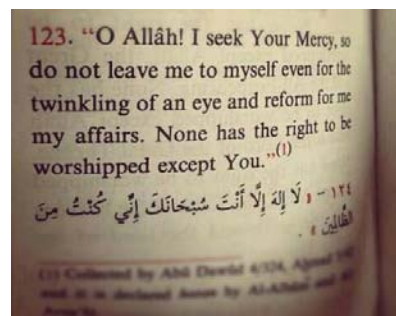 123. “O Allâh! I seek Your Mercy, so
do not leave me to myself even for the
twinkling of an eye and reform for me
my affairs. None has the right to be
worshipped except You.”(1)
١٢٤ - « لَا إِلَهَ إِلَّا أَنْتَ سُبْحَانَكَ إِنِّي كُنْتُ مِنَ
الظَّالِمِينَ » .
(1) Collected by Abû Dawûd 4/324, Ahmad
and it is declared hasan by Al-Albâni and